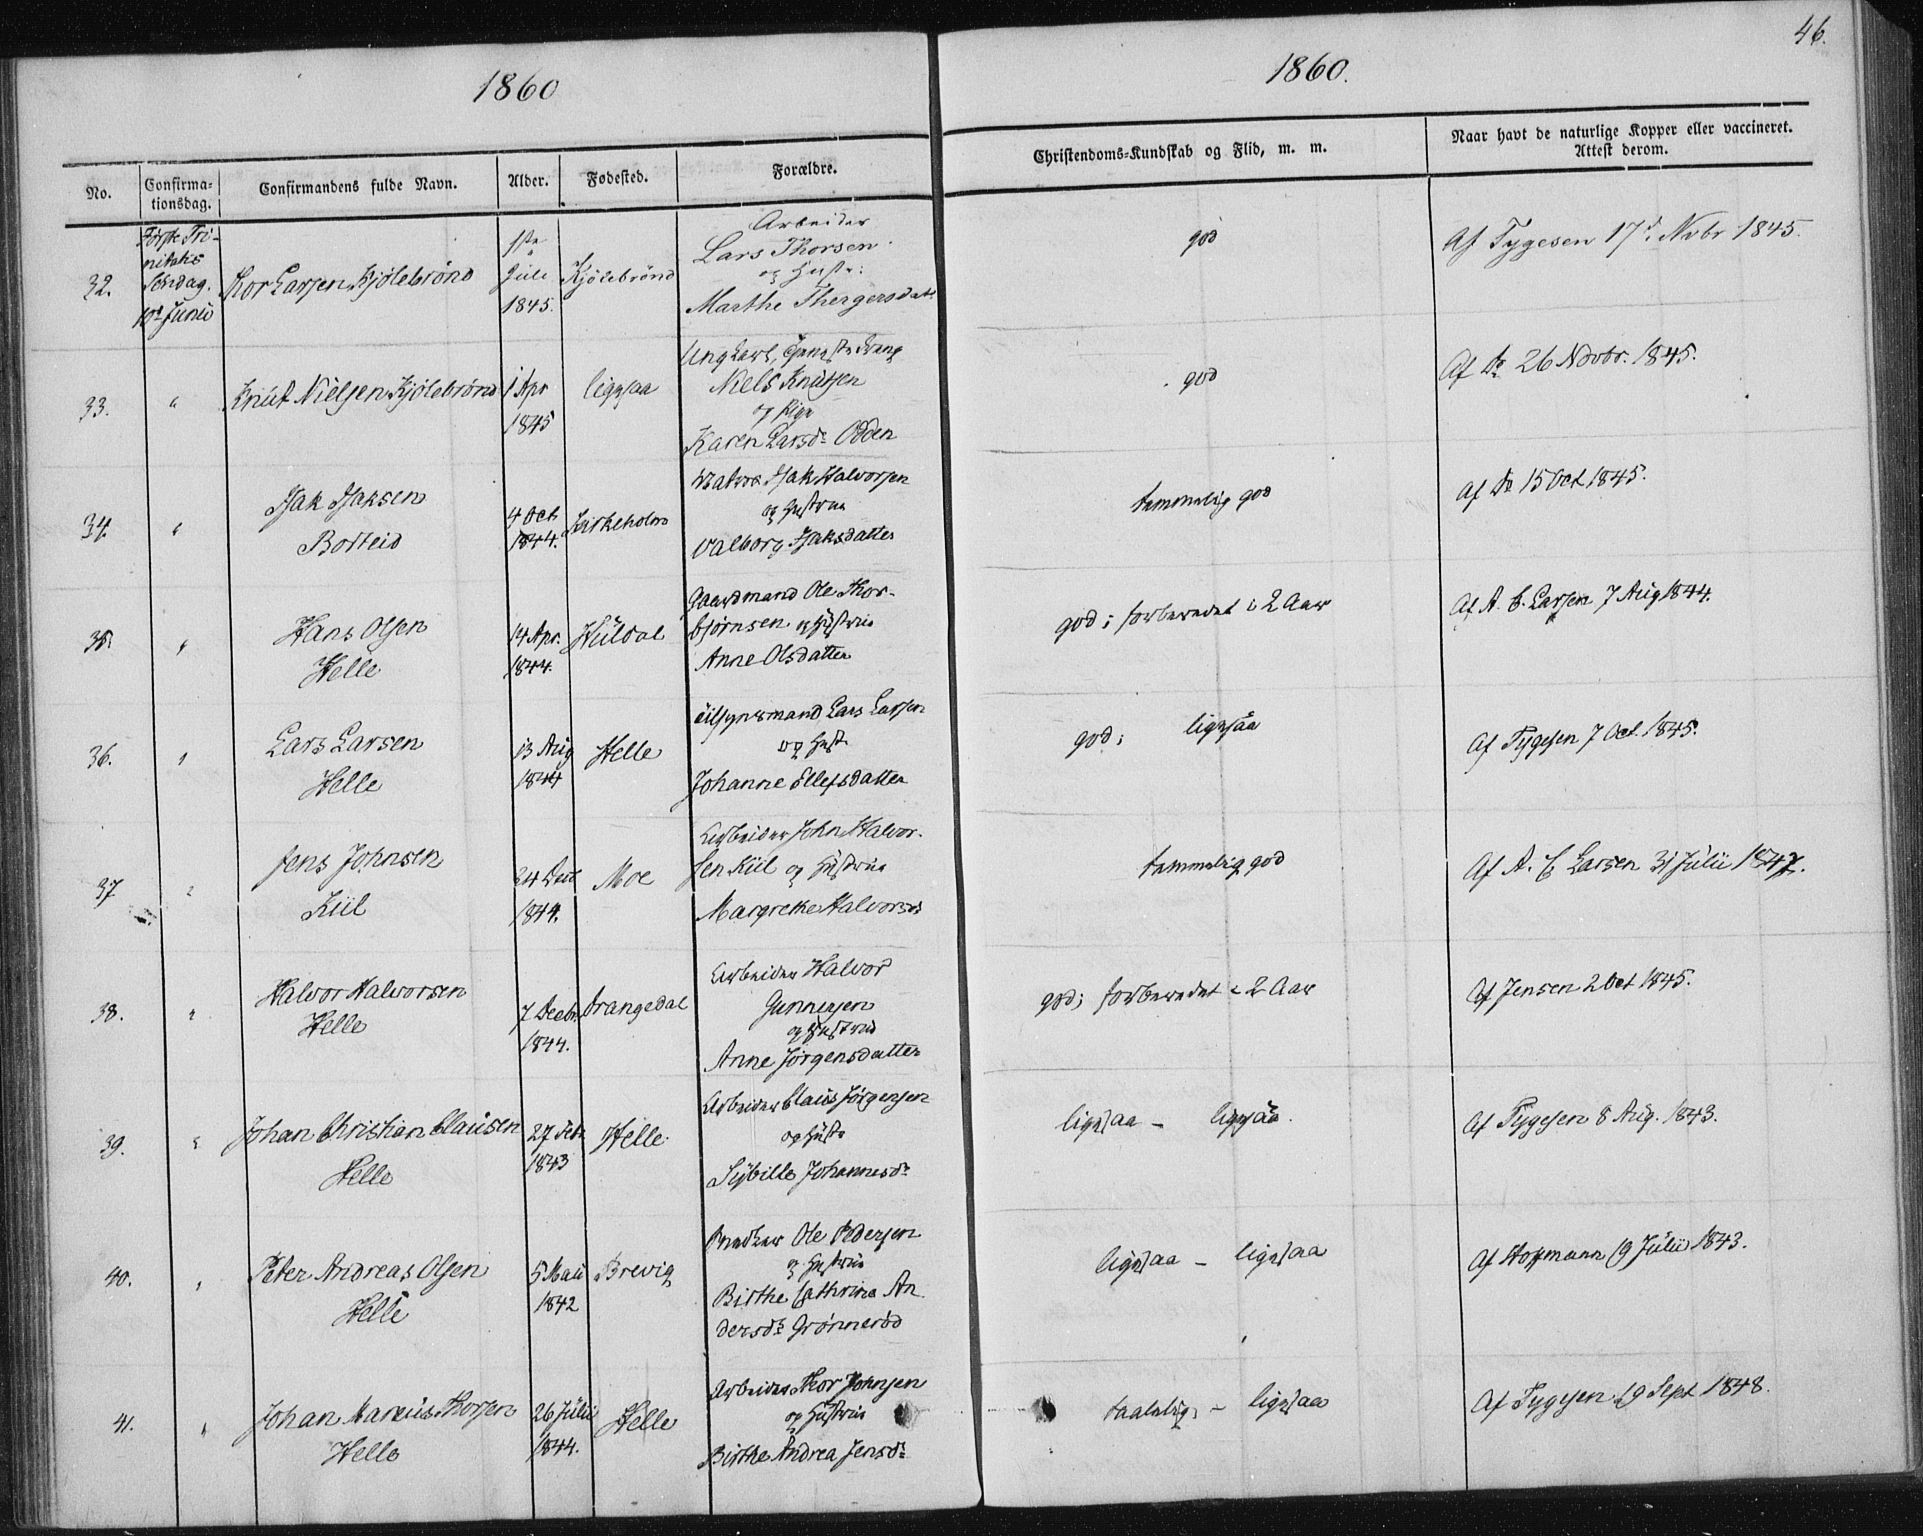 1860
1860.
46.
No.
Confirma-
tionsdag.
Confirmandens fulde Navn.
Alder.
Fødested.
Forældre.
Christendoms-Kundskab og Flid, m. m.
Naar havt de naturlige Kopper eller vaccineret.
Attest derom.
32.
Første Tri-
nitatis
Søndag.
10d Junii
Thor Larsen Kjölebrönd
1ste
Juli
1845.
Kjölebrönd
Arbeider
Lars Thorsen
og Hust:
Marthe
god
Af Tygesen 17d Novbr 1845.
33.
"
Knut Nielsen Kjölebrönd
1 Apr
1845
ligesaa
Ungkarl,
Niels Knutsen
og Pige
Karen Larsdr Odden
god
Af do 26 Novbr. 1845.
34.
"
Isak Isaksen
Borteid
4 Oct
1844.
Kirkeholm
Isak Halvorsen
og Hustrue
Valborg Isaksdatter
temmelig god
Af do 15 Oct 1845.
35.
"
Hans Olsen
Helle
14 Apr.
1844.
Huldal
Gaardmand Ole Thor-
bjørnsen og Hustrue
Anne Olsdatter
god; forberedet i 2 Aar
Af A. C. Larsen 7 Aug 1844.
36.
"
Lars Larsen
Helle
13 Aug
1844
Helle
Lars Larsen
og Hust
Johanne Ellefsdatter
god; ligesaa
Af Tygesen 7 Oct 1845.
37
"
Jens Johnsen
Kiil
24
1844.
Moe
Arbeider John Halvor-
sen Kiil og Hustrue
Margrethe Halvorsdr
temmelig god
Af A. C Larsen 31 Julii 1847.
38.
"
Halvor Halvorsen
Helle
7 Decbr.
1844.
Drangedal
Arbeider Halvor
Gunnersen
og Hustrue
Anne Jörgensdatter
god; forberedet i 2 Aar
Af Jensen 2 Oct 1845.
39.
"
Johan Christian Clausen
Helle
27 Febr
1843
Helle
Arbeider Claus Jörgensen
og Hustr
Sibille Johannesdr
ligesaa - ligesaa.
Af Tygesen 8 Aug. 1843.
40.
"
Peter Andreas Olsen
Helle
5 Maii
1842
Brevig
Snedker Ole Pedersen
og Hustrue
Birthe Cathrine An
dersdr Grønnerød
ligesaa - ligesaa
Af Hoffmann 19 Julii 1843.
41.
"
Johan Marcus Thorsen
Helle
26 Julii
1844.
Helle
Arbeider Thor Johnsen
og Hustrue
Birthe Andrea Jensdr
taalelig - ligesaa
Af Tygesen 19 Sept 1848.